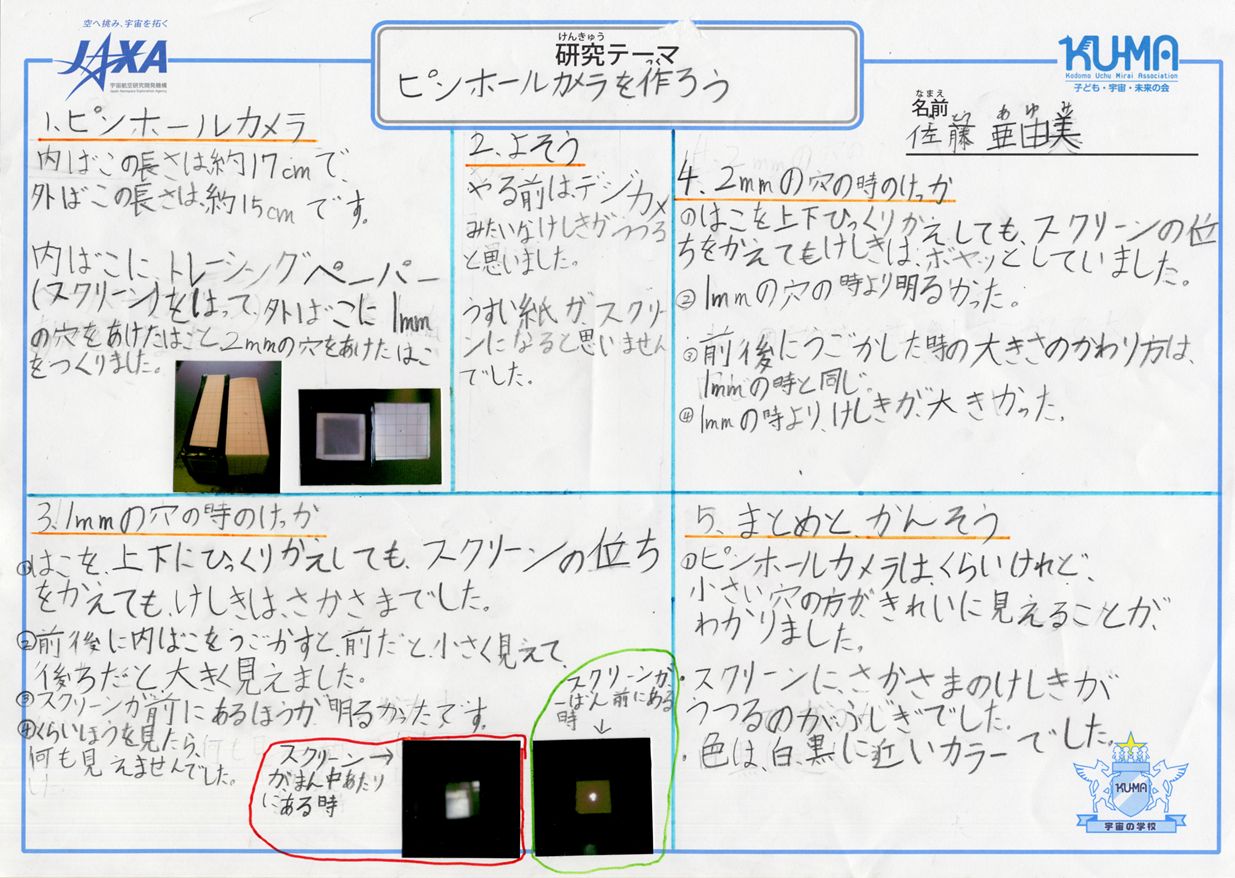 空へ挑み、宇宙を拓く
JAXA
宇宙航空研究開発機構
Japan Aerospace Exploration Agency
けんきゅう
研究テーマ
つく
ピンホールカメラを作ろう
KU-MA
Kodomo Uchu Mirai Association
子ども・宇宙・未来の会
なまえ
名前
さとう あゆみ
佐藤 亜由美
1、ピンホールカメラ
内ばこの長さは約17cmで、
外ばこの長さは、約15cmです。
内ばこに、トレーシングペーパー
(スクリーン)をはって、外ばこに1mm
の穴をあけたはこと、2mmの穴をあけたはこ
をつくりました。
2、よそう
やる前は、デジカメ
みたいなけしきがうつる
と思いました。
うすい紙が、スクリー
ンになると思いません
でした。
3、1mmの穴の時のけっか
①はこを、上下にひっくりかえしても、スクリーンの位ち
をかえても、けしきは、さかさまでした。
②前後に内ばこをうごかすと、前だと、小さく見えて、
後ろだと大きく見えました。
③スクリーンが前にあるほうが、明るかったです。
④くらいほうを見たら、
何も見えませんでした。
スクリーン→
が、まん中あたり
にある時
スクリーンが、
一ばん前にある
時 ↓
4、2mmの穴の時のけっか
①はこを上下ひっくりかえしても、スクリーンの位
ちをかえてもけしきは、ボヤッとしていました。
②1mmの穴の時より明るかった。
③前後にうごかした時の大きさのかわり方は、
1mmの時と同じ。
④1mmの時より、けしきが、大きかった。
5、まとめと、かんそう
①ピンホールカメラは、くらいけれど、
小さい穴の方がきれいに見えることが、
わかりました。
・スクリーンに、さかさまのけしきが
うつるのが、ふしぎでした。
・色は、白黒に近いカラーでした。
KU-MA
宇宙の学校